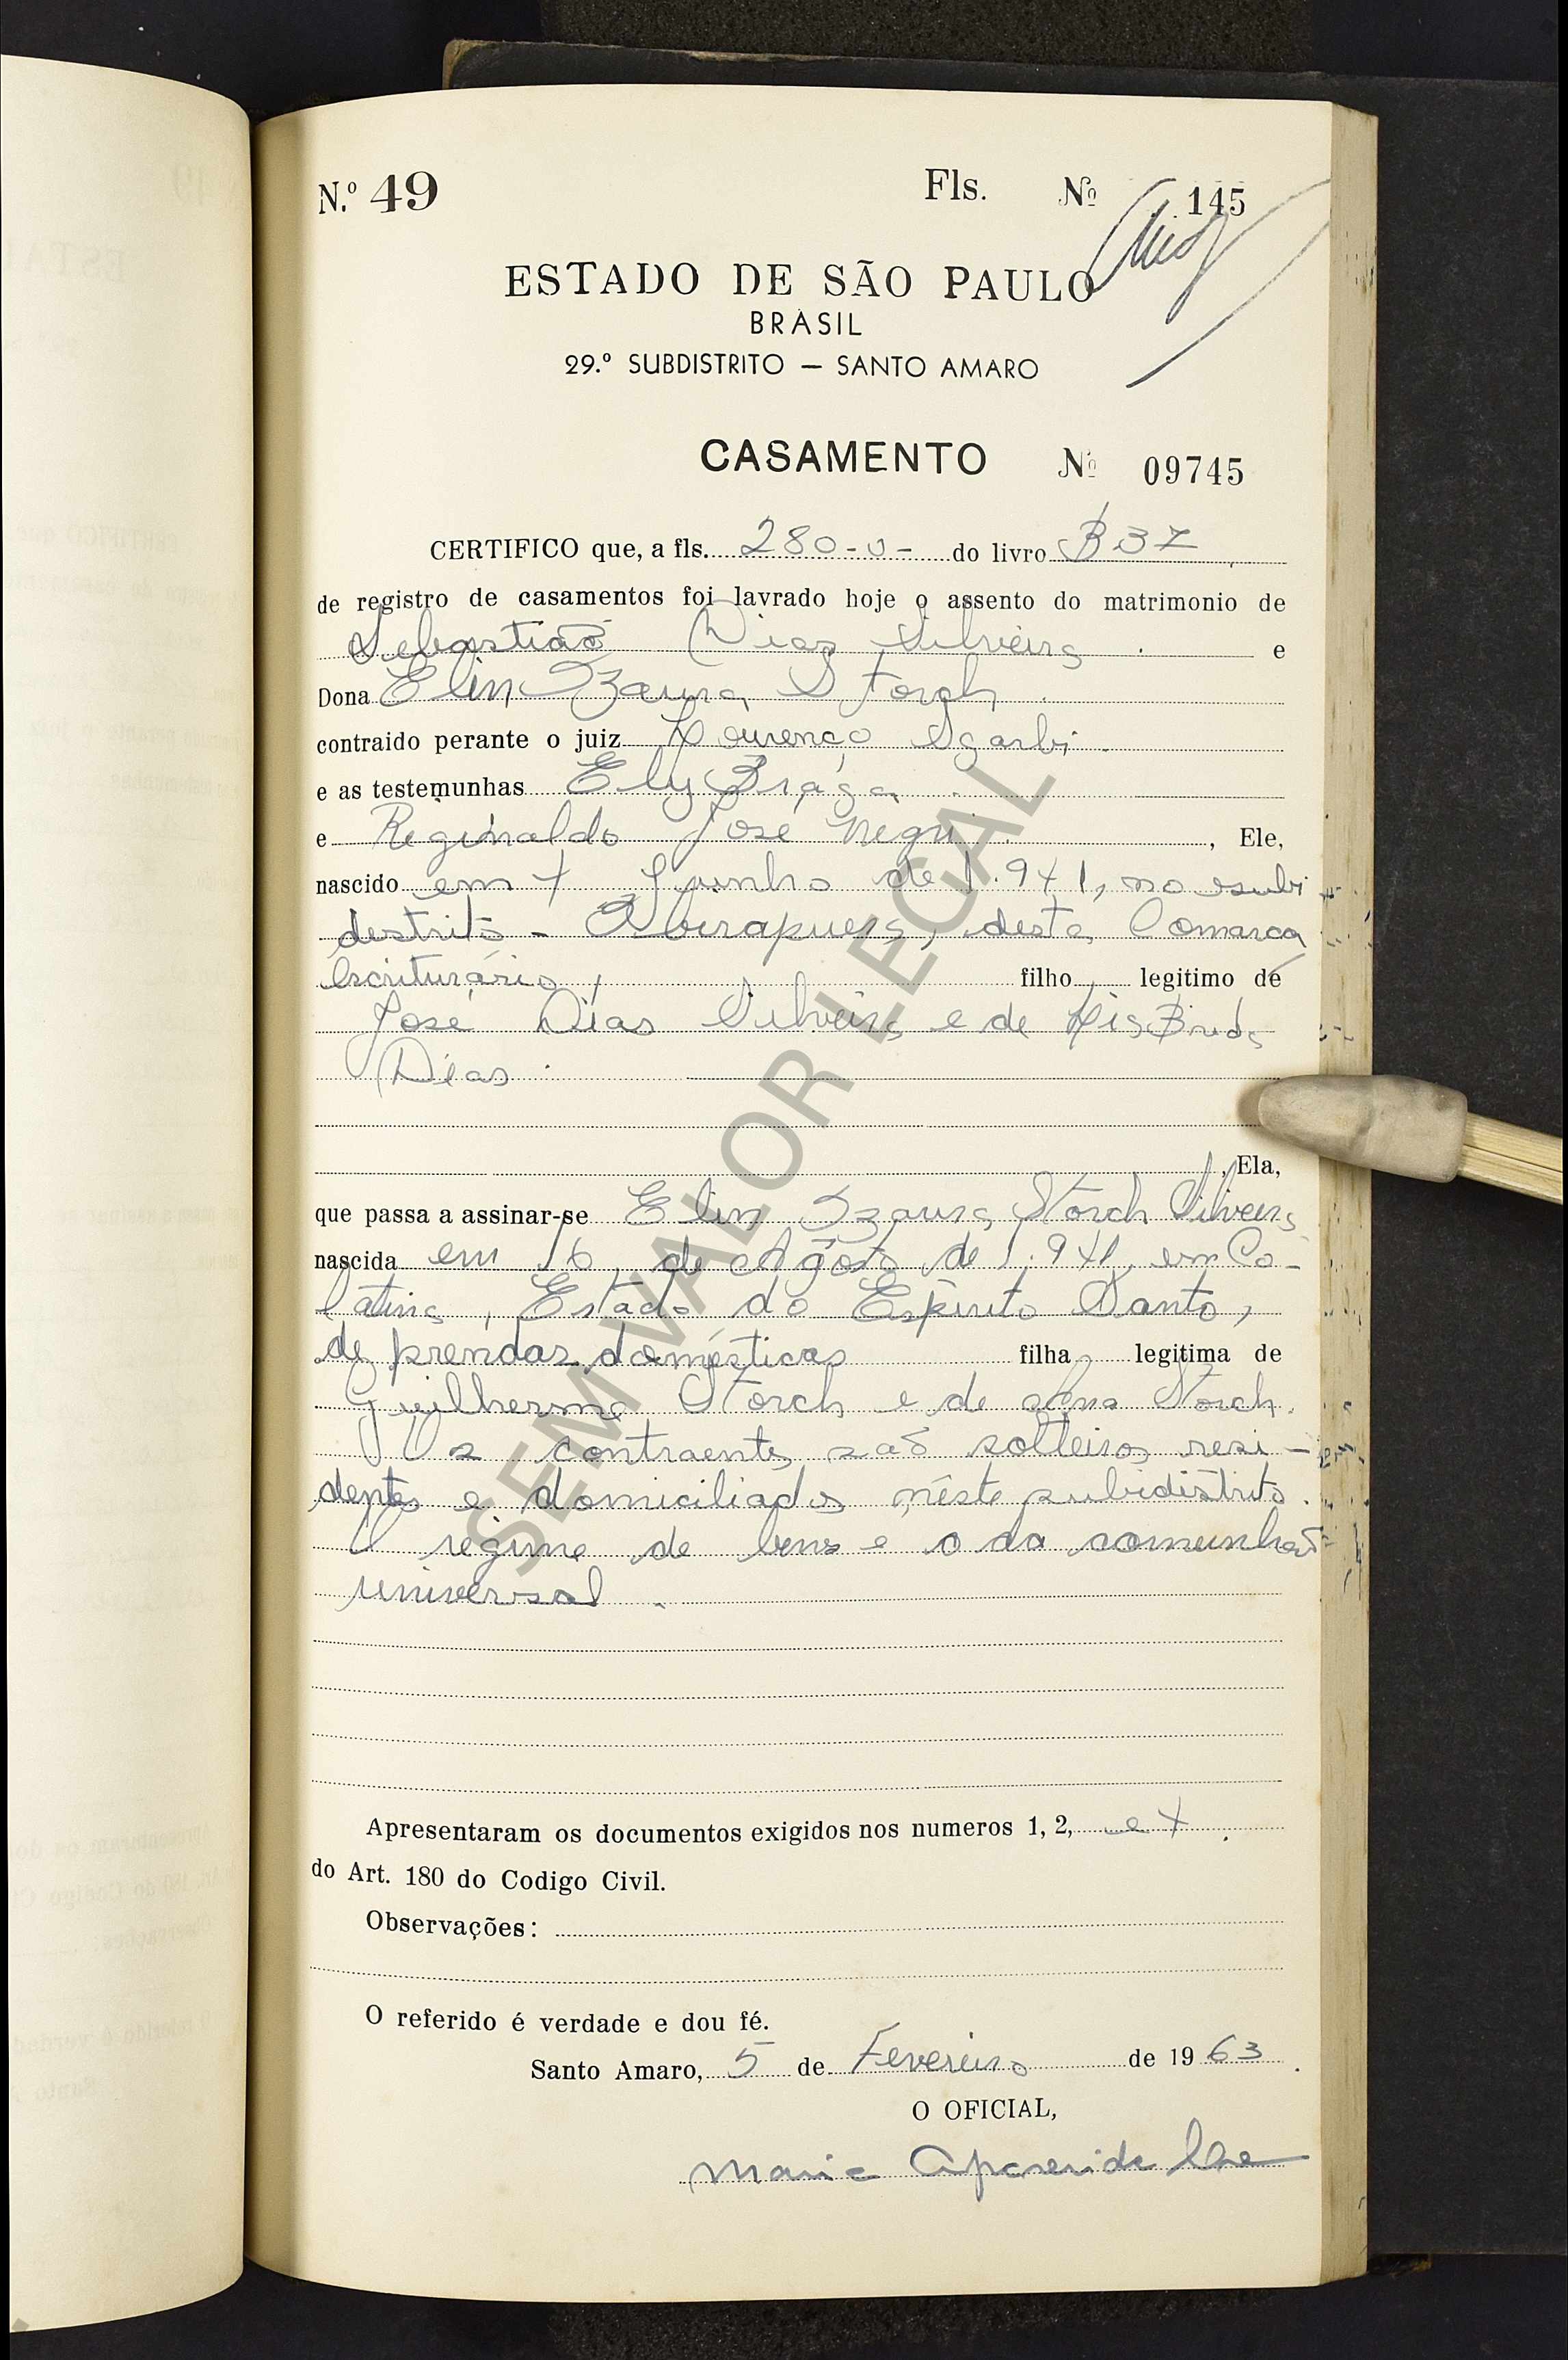 N.º 49 Fls. Nº 145
ESTADO DE SÃO PAULO
BRASIL
29.º SUBDISTRITO — SANTO AMARO
CASAMENTO Nº 09745
CERTIFICO que, a fls. 280-v- do livro B37
de registro de casamentos foi lavrado hoje o assento do matrimonio de
Sebastião Dias Silveira e
Dona Elin Izaura Storch
contraido perante o juiz Lourenço Sgarbi
e as testemunhas Ely Braga
e Reginaldo José Negri, Ele,
nascido em 4 Junho de 1.941, no subi
distrito - Ibirapuera, desta Comarca
escriturário, filho legitimo de
José Dias Silveira e de
Dias
, Ela,
que passa a assinar-se Elin Izaura Storch Silveira
nascida em 16 de Agôsto de 1.941, em Co-
latina, Estado do Espirito Santo,
de prendas domésticas filha legitima de
Guilherme Storch e de Storch.
Os contraentes são solteiros, resi-
dentes e domiciliados nêste subidistrito.
O regime de bens e o da comunhão
universal.
Apresentaram os documentos exigidos nos numeros 1, 2, e 4
do Art. 180 do Codigo Civil.
Observações:
O referido é verdade e dou fé.
Santo Amaro, 5 de Fevereiro de 1963.
O OFICIAL,
Maria Aparecida
SEM VALOR LEGAL